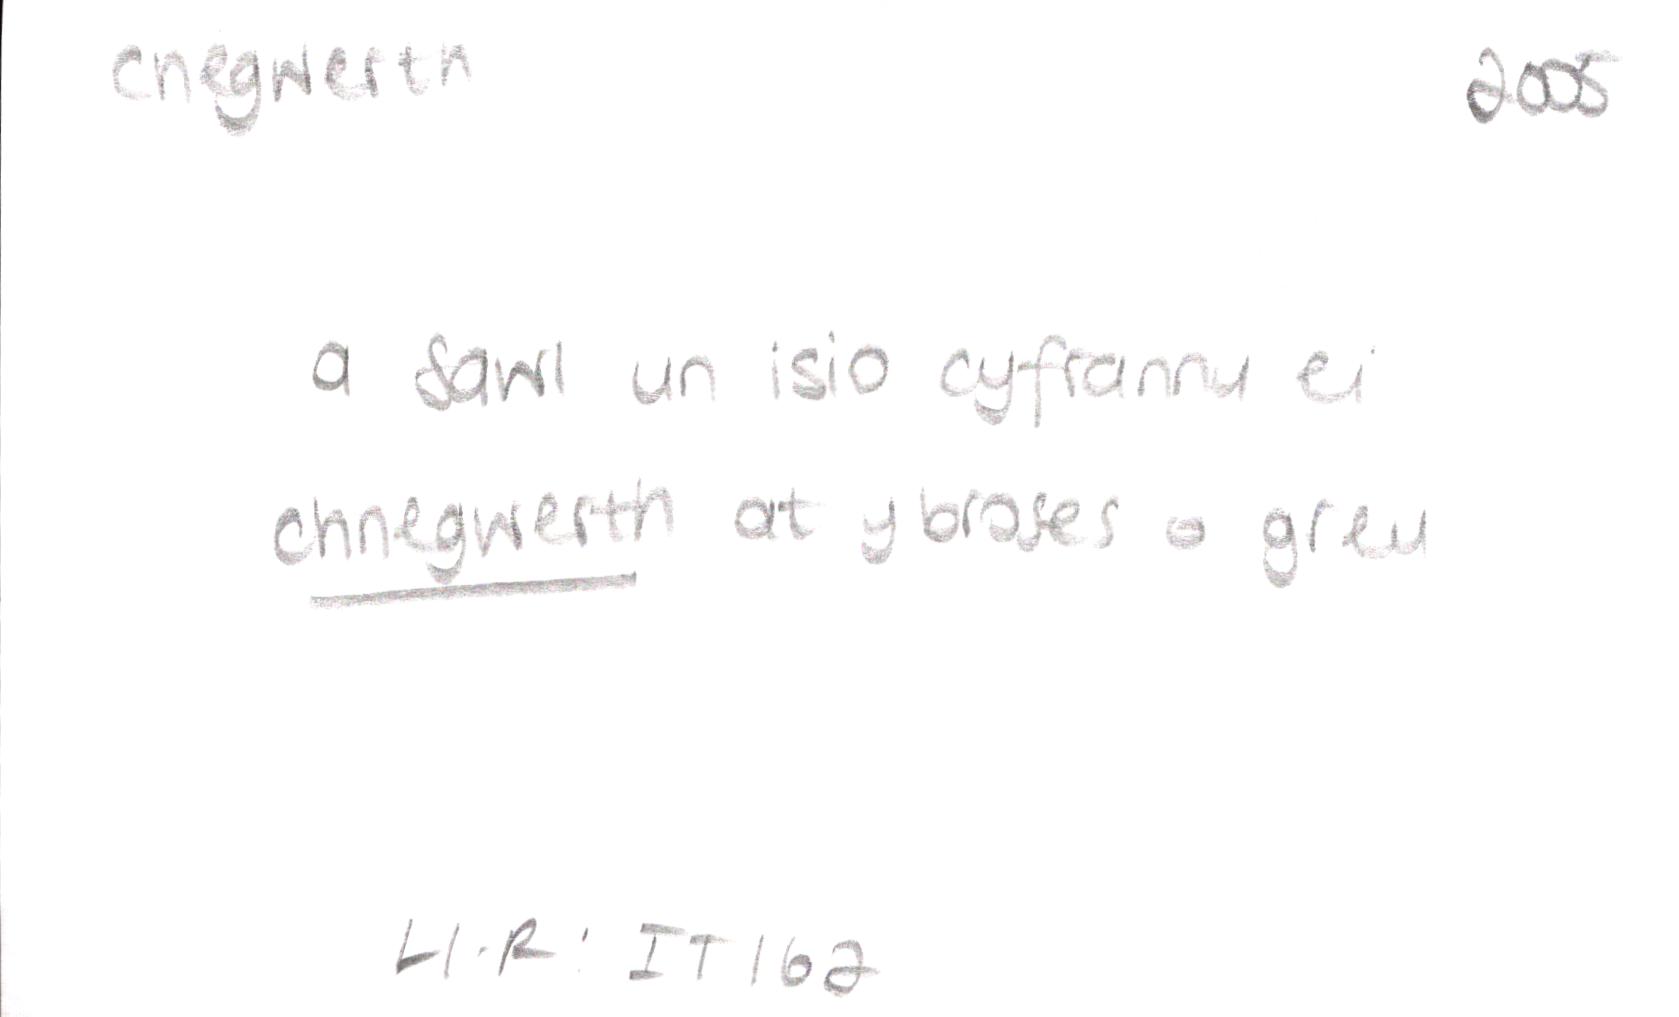 cnegwerth 2005
a sawl un isio cyfrannu ei
chnegwerth at y broses o greu
Ll.R: IT 162